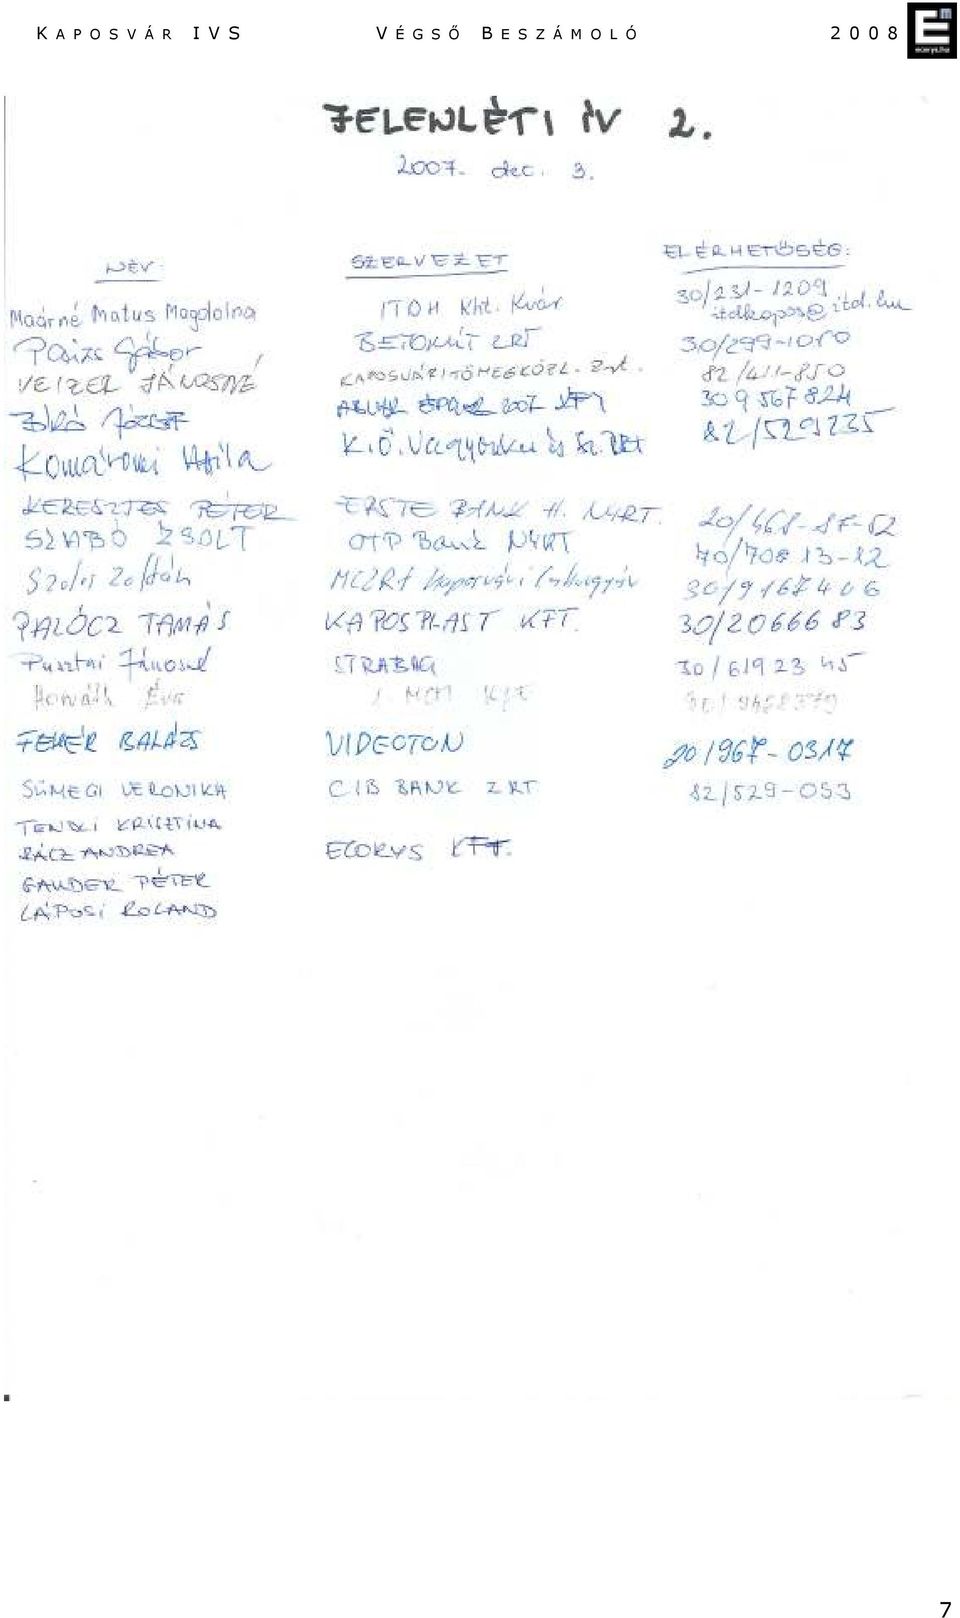 KAPOSVÁR IVS VÉGSŐ BESZÁMOLÓ 2008
JELENLÉTI ÍV 2.
2007. dec. 3.
NÉV: SZERVEZET ELÉRHETŐSÉG:
Maárné Matus Magdolna ITDH Kht. Kvár 30/231-1209 itdkapos@itd.hu
Paizs Gábor BETONÚT ZRT 30/299-1080
VEIZER JÁNOSNÉ KAPOSVÁRI TÖMEGKÖZL. Zrt. 82/411-850
Biró József 2007 30 9 567 824
Komáromi Attila K.Ö. Vagyonkez. és Sz. Zrt 82/529235
KERESZTES PÉTER ERSTE BANK H. NYRT. 20/468-87-52
SZABÓ ZSOLT OTP Bank NYRT 70/708 13-12
Szolos Zoltán MCZRt Kaposvári Cukorgyár 30/9167406
PALÓCZ TAMÁS KAPOSPLAST KFT. 30/2066683
Pusztai Jánosné STRABAG 30/619 23 45
Horváth Éva
FEHÉR BALÁZS VIDEOTON 20/967-0317
SÜMEGI VERONIKA CIB BANK ZRT 82/529-053
TENDLI KRISZTINA
RÁCZ ANDREA ECORYS KFT.
GAUDER PÉTER
LÁPOSI ROLAND
7